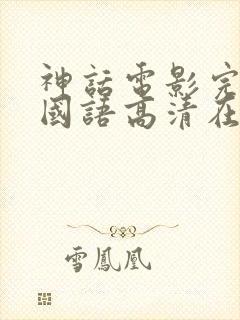 神話電影完
國語高清在
雪鳳凰